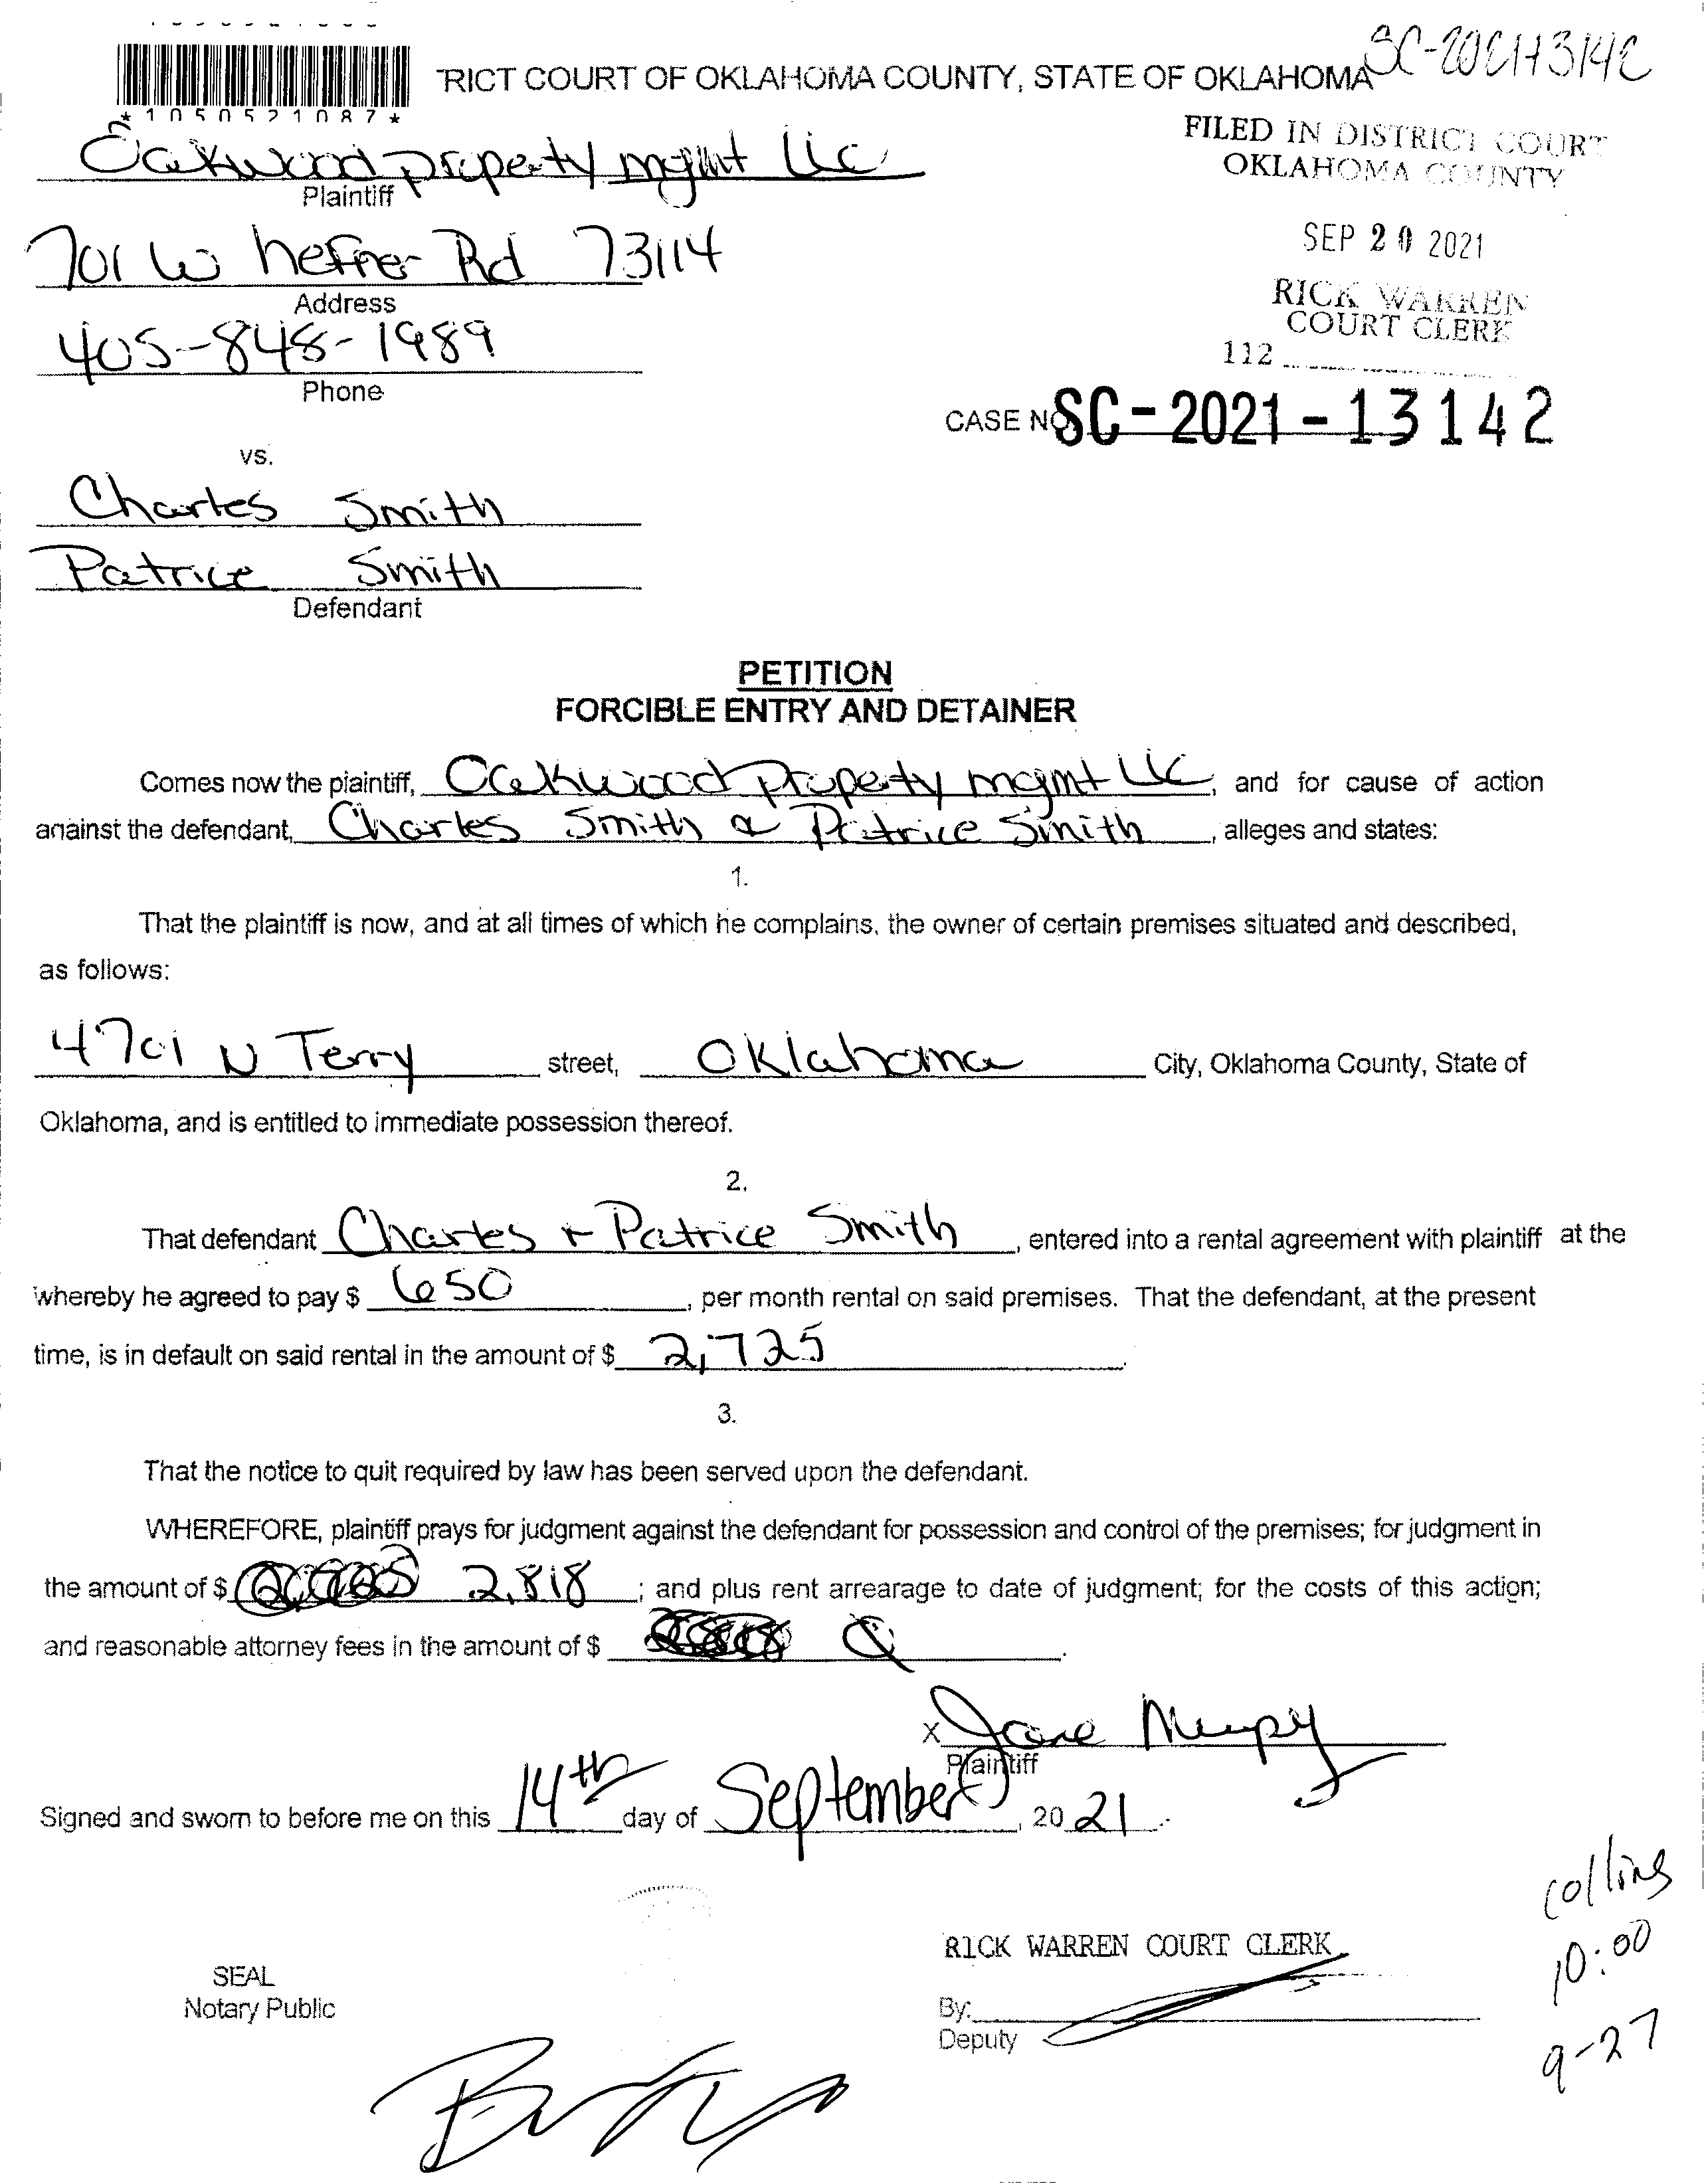 SC-2021-13142
RICT COURT OF OKLAHOMA COUNTY, STATE OF OKLAHOMA
*1050521087*
FILED IN DISTRICT COURT
OKLAHOMA COUNTY
Oakwood property mgmt llc
Plaintiff
SEP 20 2021
701 W hefner Rd 73114
Address
RICK WARREN
COURT CLERK
405-848-1989
112
Phone
CASE NO SC-2021-13142
vs.
Charles Smith
Patrice Smith
Defendant
PETITION
FORCIBLE ENTRY AND DETAINER
Comes now the plaintiff, Oakwood property mgmt LLC, and for cause of action
against the defendant, Charles Smith & Patrice Smith, alleges and states:
1.
That the plaintiff is now, and at all times of which he complains, the owner of certain premises situated and described,
as follows:
4701 N Terry street, Oklahoma City, Oklahoma County, State of
Oklahoma, and is entitled to immediate possession thereof.
2.
That defendant Charles + Patrice Smith, entered into a rental agreement with plaintiff at the
whereby he agreed to pay $ 650, per month rental on said premises. That the defendant, at the present
time, is in default on said rental in the amount of $ 2,725.
3.
That the notice to quit required by law has been served upon the defendant.
WHEREFORE, plaintiff prays for judgment against the defendant for possession and control of the premises; for judgment in
the amount of $ 2,818; and plus rent arrearage to date of judgment; for the costs of this action;
and reasonable attorney fees in the amount of $
X
Plaintiff
Signed and sworn to before me on this 14th day of September, 20 21.
collins
10:00
9-27
RICK WARREN COURT CLERK
SEAL
Notary Public
By:
Deputy